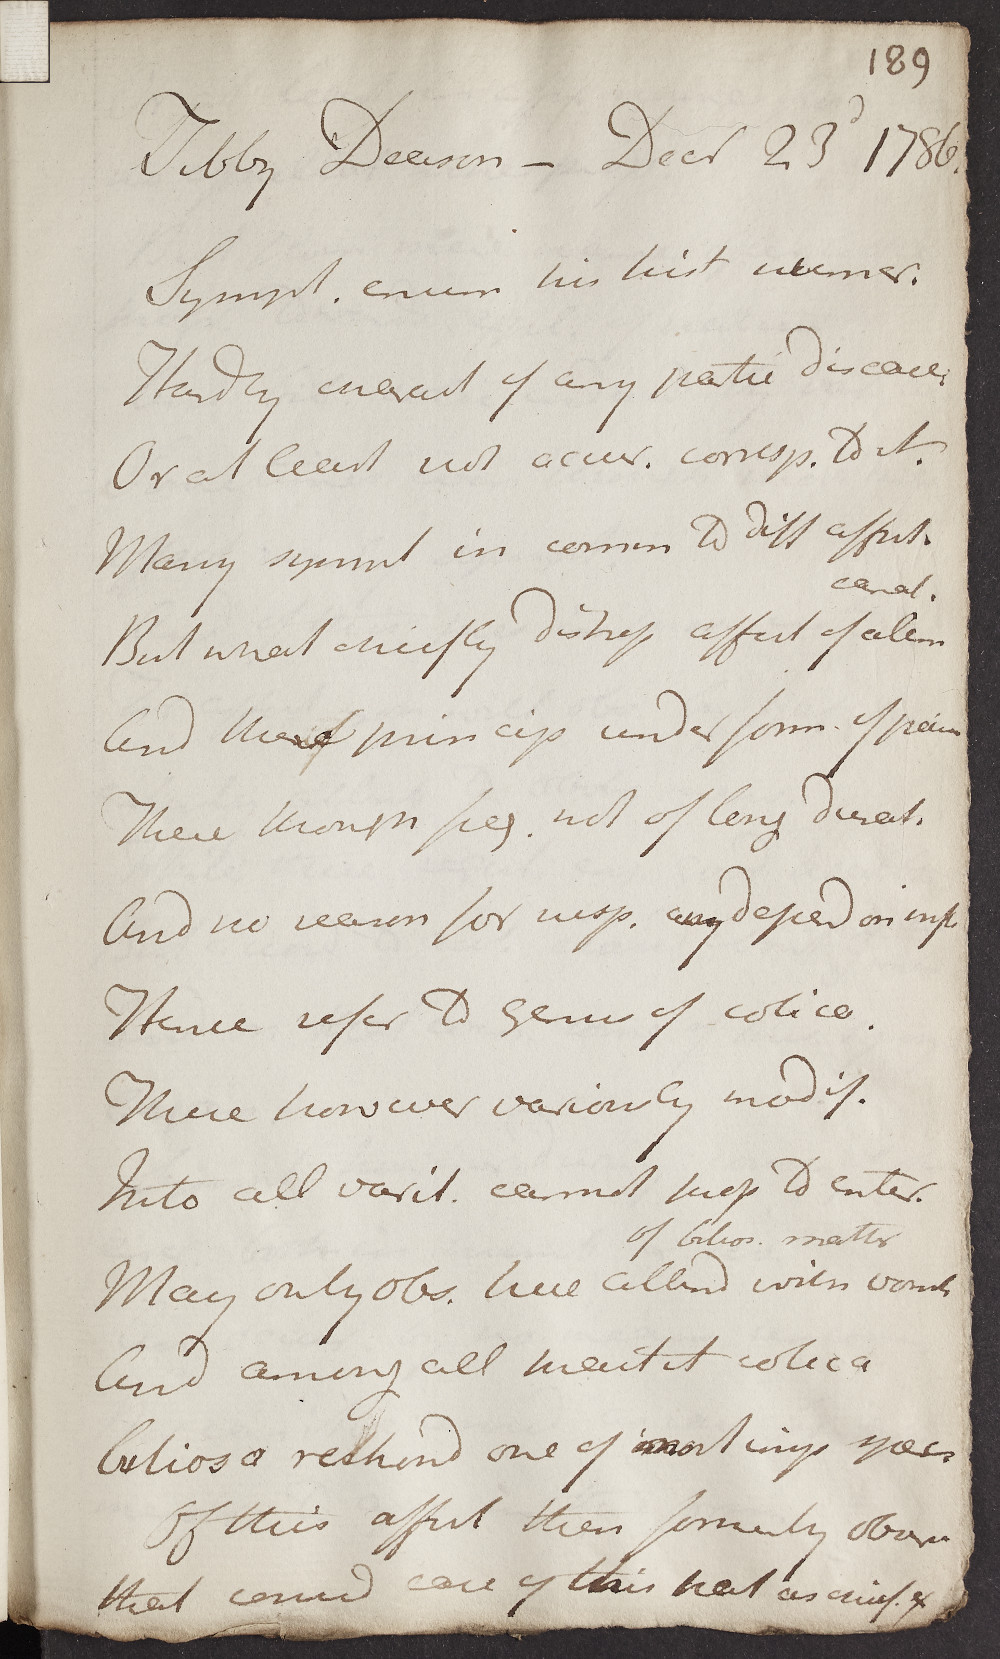 189
Tibby Deason - Decr 23d 1786.
Sympt. enum in his hist numer.
Hardly charact of any partic disease
Or at least not accur. corresp. to it.
Many sympt in comm to diff affect.
canal.
But what chiefly distress affect of alim
And these princip under form of pain
These though freq. not of long durat.
And no reason for susp. any depend on infl.
Hence refer to genus of colica.
These however variously modif.
Into all variet. cannot prop to enter.
of bilios. matter
May only obs. here attend with vomit
And among all treat it colica
biliosa reckond one of most imp species
Of this affect then formerly observ
that consid case of this nat as chief. of